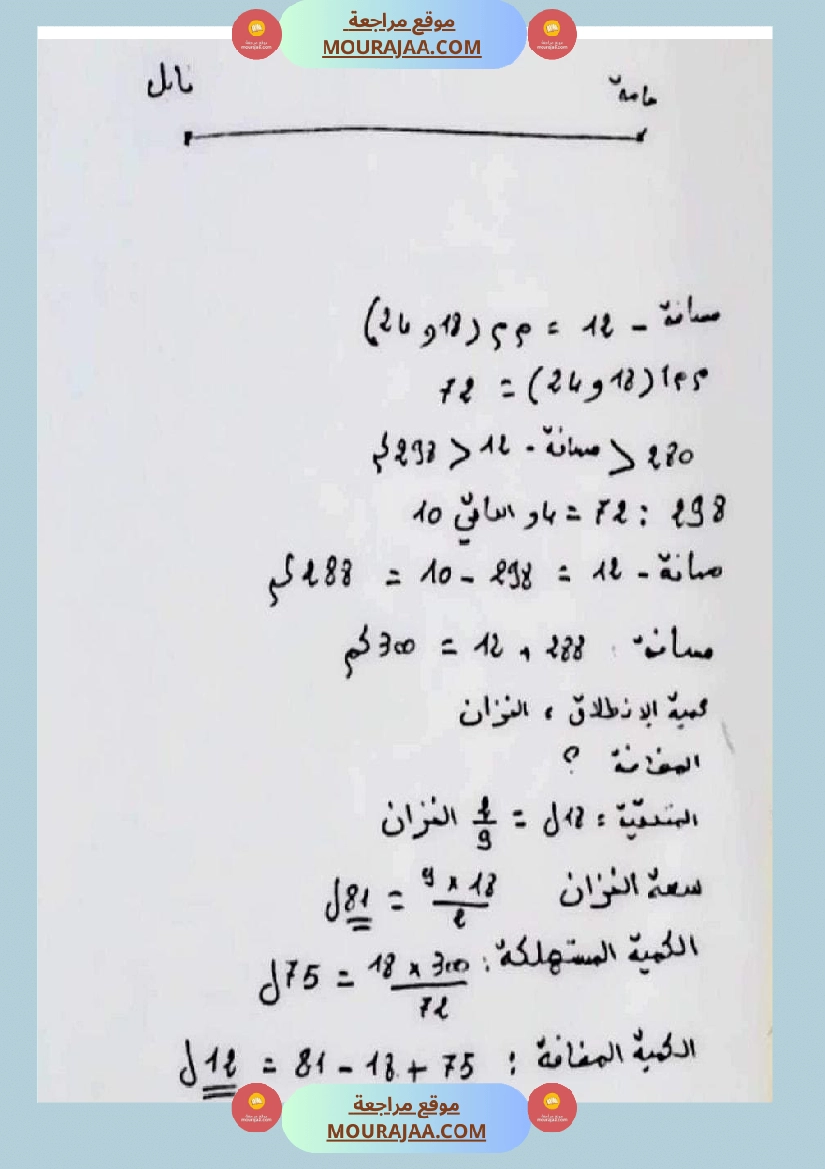 موقع مراجعة
MOURAJAA.COM
حامة نابل
مسافة - 12 = م م (18 و 24)
م م أ (18 و 24) = 72
280 < مسافة - 12 < 298 كم
298 : 72 = 4 و الباقي 10
مسافة - 12 = 298 - 10 = 288 كم
مسافة : 288 + 12 = 300 كم
كمية الإنطلاق : الخزان
المضافة ؟
المتبقية : 18 ل = 2/9 الخزان
سعة الخزان 18 × 9 / 2 = 81 ل
الكمية المستهلكة : 300 × 18 / 72 = 75 ل
الكمية المضافة : 75 + 18 - 81 = 12 ل
موقع مراجعة
MOURAJAA.COM